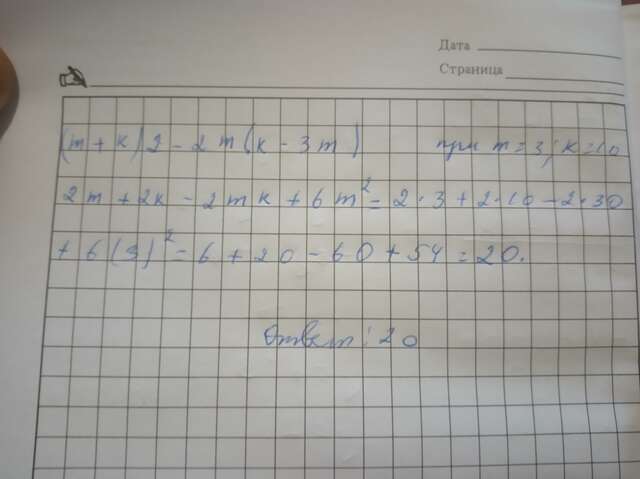 Дата
Страница
(m+k)2-2m(k-3m) при m=3; k=10
2m+2k-2mk+6m²=2·3+2·10-2·30
+6(3)²=6+20-60+54=20.
Ответ: 20